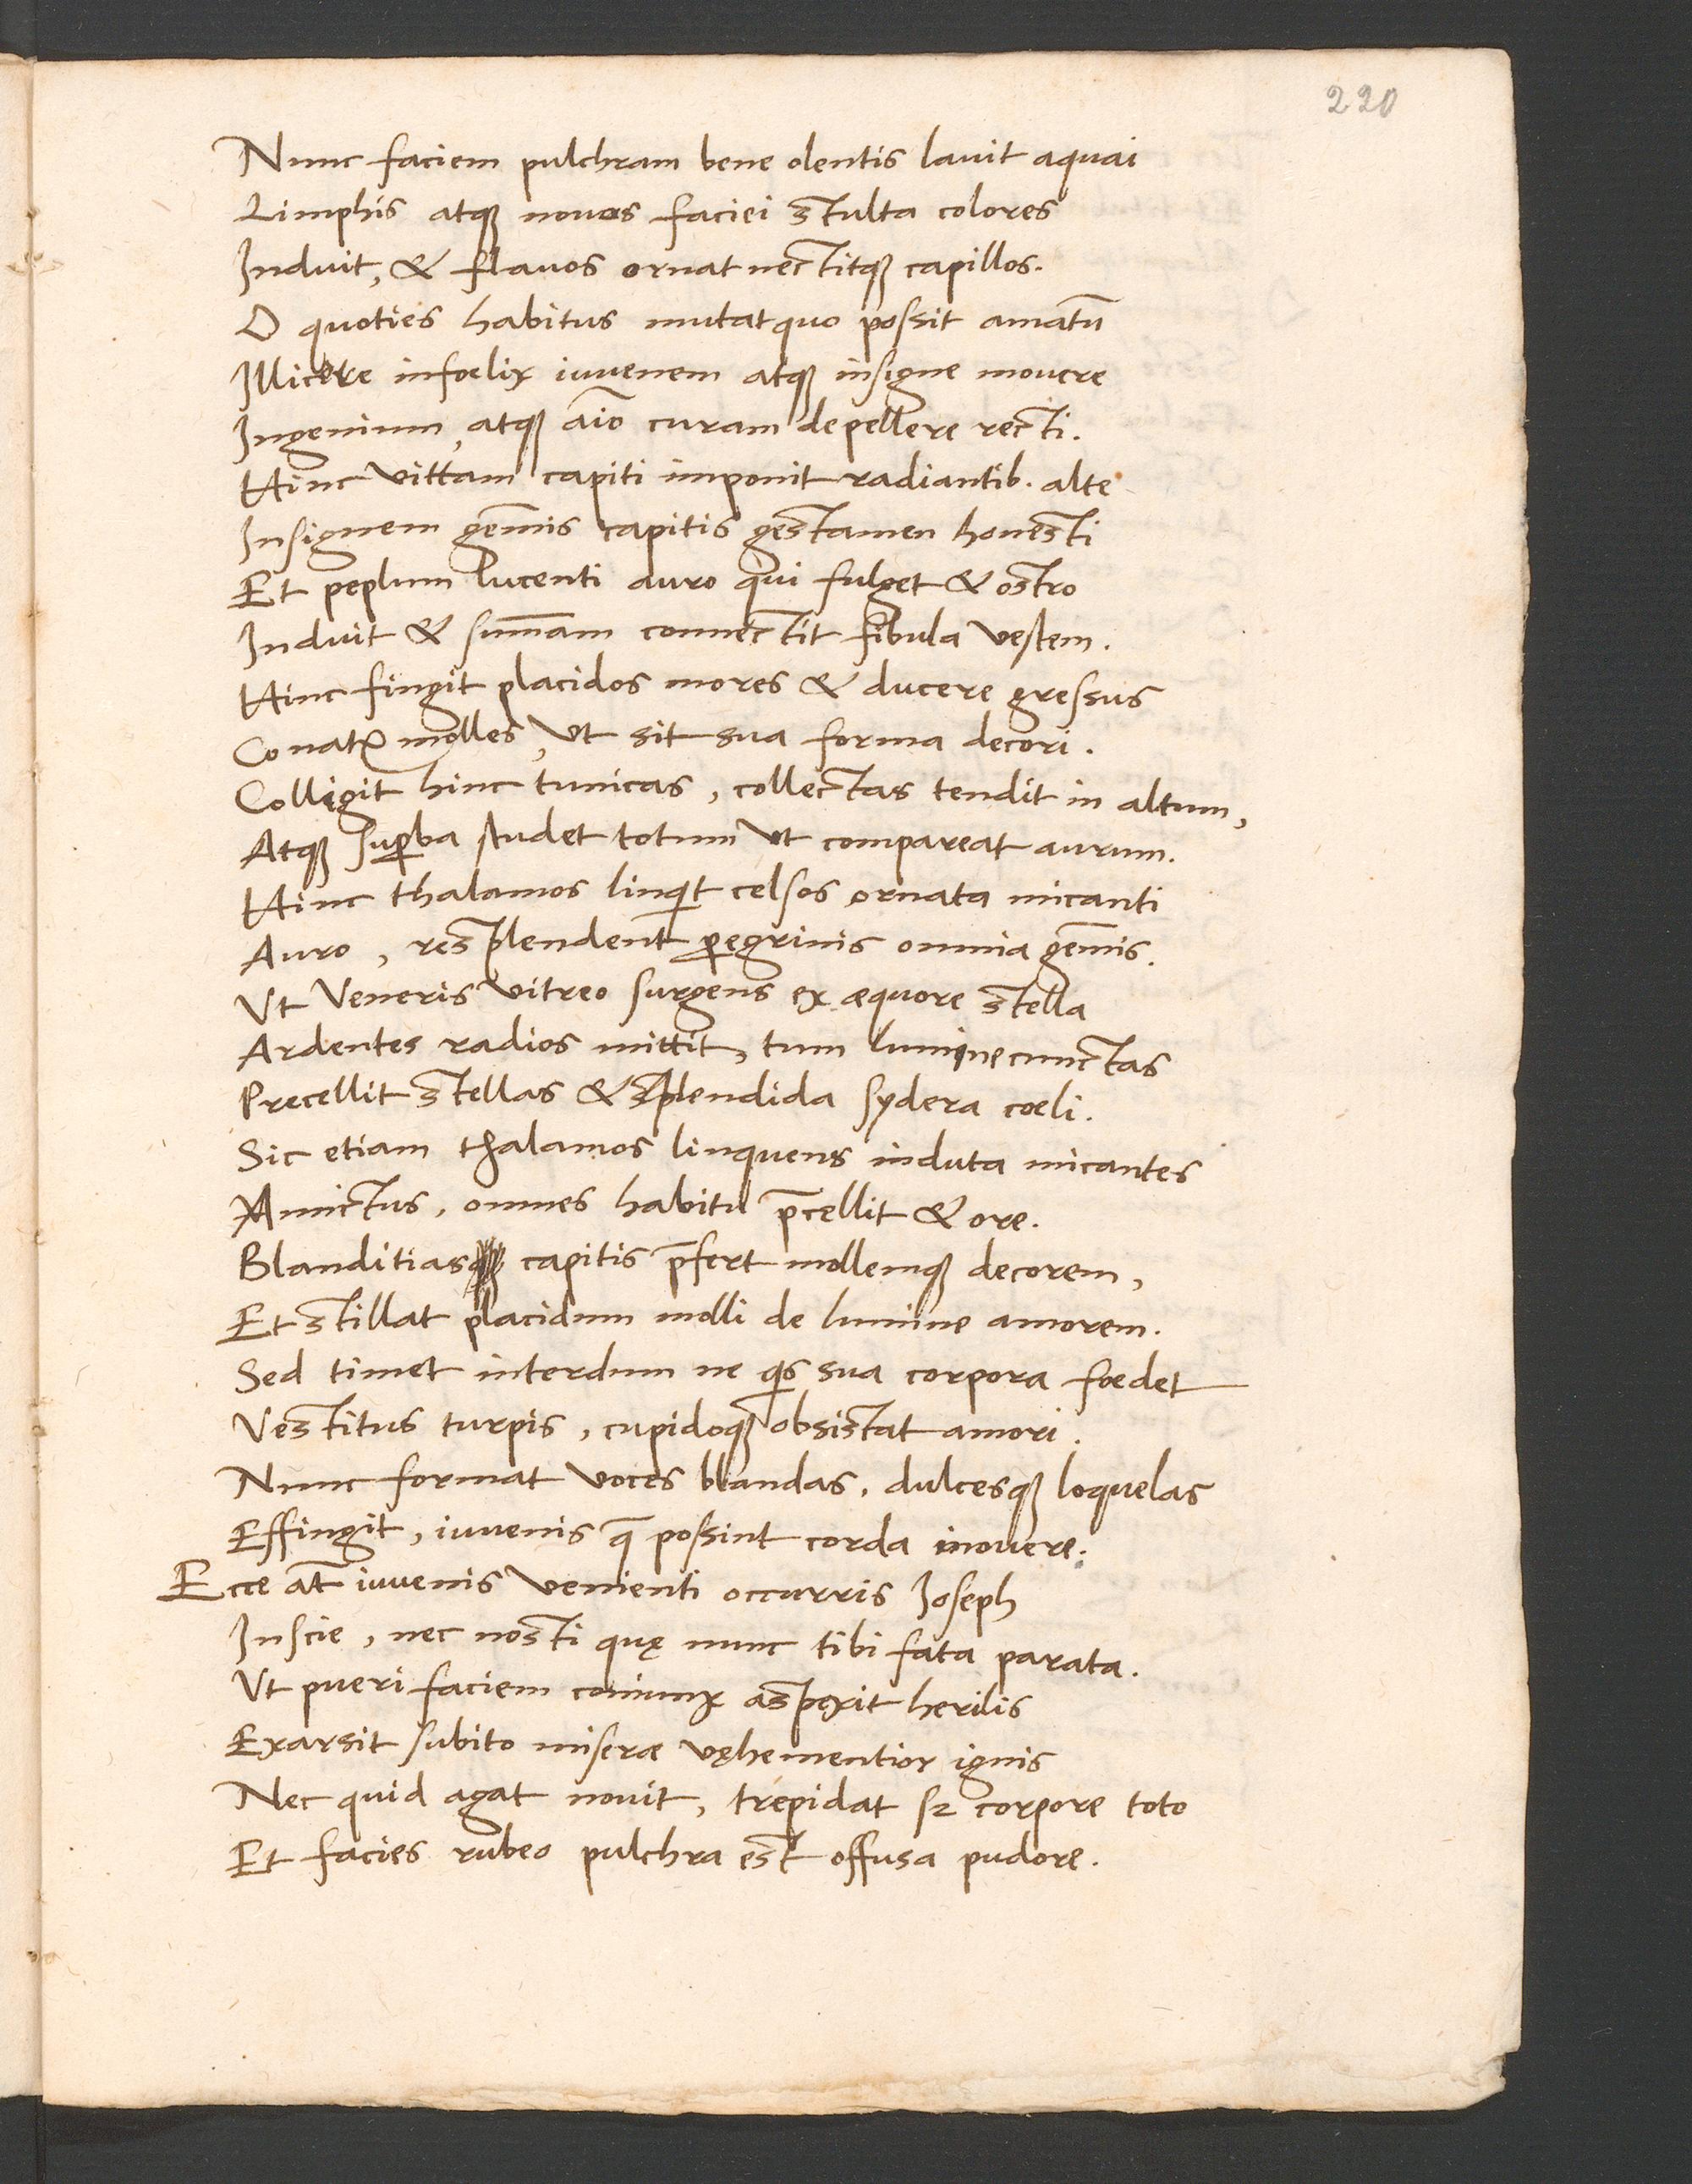 220
Nunc faciem pulchram bene olentis lavit aquai
Limphis atqꝫ novos faciei stulta colores
Induit, & flavos ornat nectitqꝫ capillos.
O quoties habitus mutat quo possit amatū
Illicere infoelix iuvenem atqꝫ insigne movere
Ingenium, atqꝫ aīo curam depellere recti.
Hinc vittam capiti imponit radiantib. alte
Insignem gem̄is capitis gestamen honesti
Et peplum lucenti auro qui fulget & ostro
Induit & sum̄am connectit fibula vestem.
Hinc fingit placidos mores & ducere gressus
Conatꝛ molles, Ut sit sua forma decori.
Colligit hinc tunicas, collectas tendit in altum,
Atqꝫ suꝑba studet totum Ut compareat aurum.
Hinc thalamos linqͥt celsos ornata micanti
Auro, resplendent ꝑegrinis omnia gem̄is.
Ut Veneris vitreo surgens ex æquore stella
Ardentes radios mittit, tum lumine cunctas
Precellit stellas & splendida sydera coeli.
Sic etiam thalamos linquens induta micantes
Amictus, omnes habitu p̄cellit & ore.
Blanditias capitis p̄fert mollemqꝫ decorem,
Et stillat placidum molli de lumine amorem.
Sed timet interdum ne qͥs sua corpora foedet
Vestitus turpis, cupidoqꝫ obsistat amori.
Nunc format voces blandas, dulcesqꝫ loquelas
Effingit, iuvenis q̄ possint corda movere.
Ecce at̄ iuvenis venienti occurris Joseph
Inscie, nec nosti quę nunc tibi fata parata.
Ut pueri faciem coniunx aspexit herilis
Exarsit subito miseræ vęhementior ignis
Nec quid agat novit, trepidat sꝫ corpore toto
Et facies rubeo pulchra est offusa pudore.